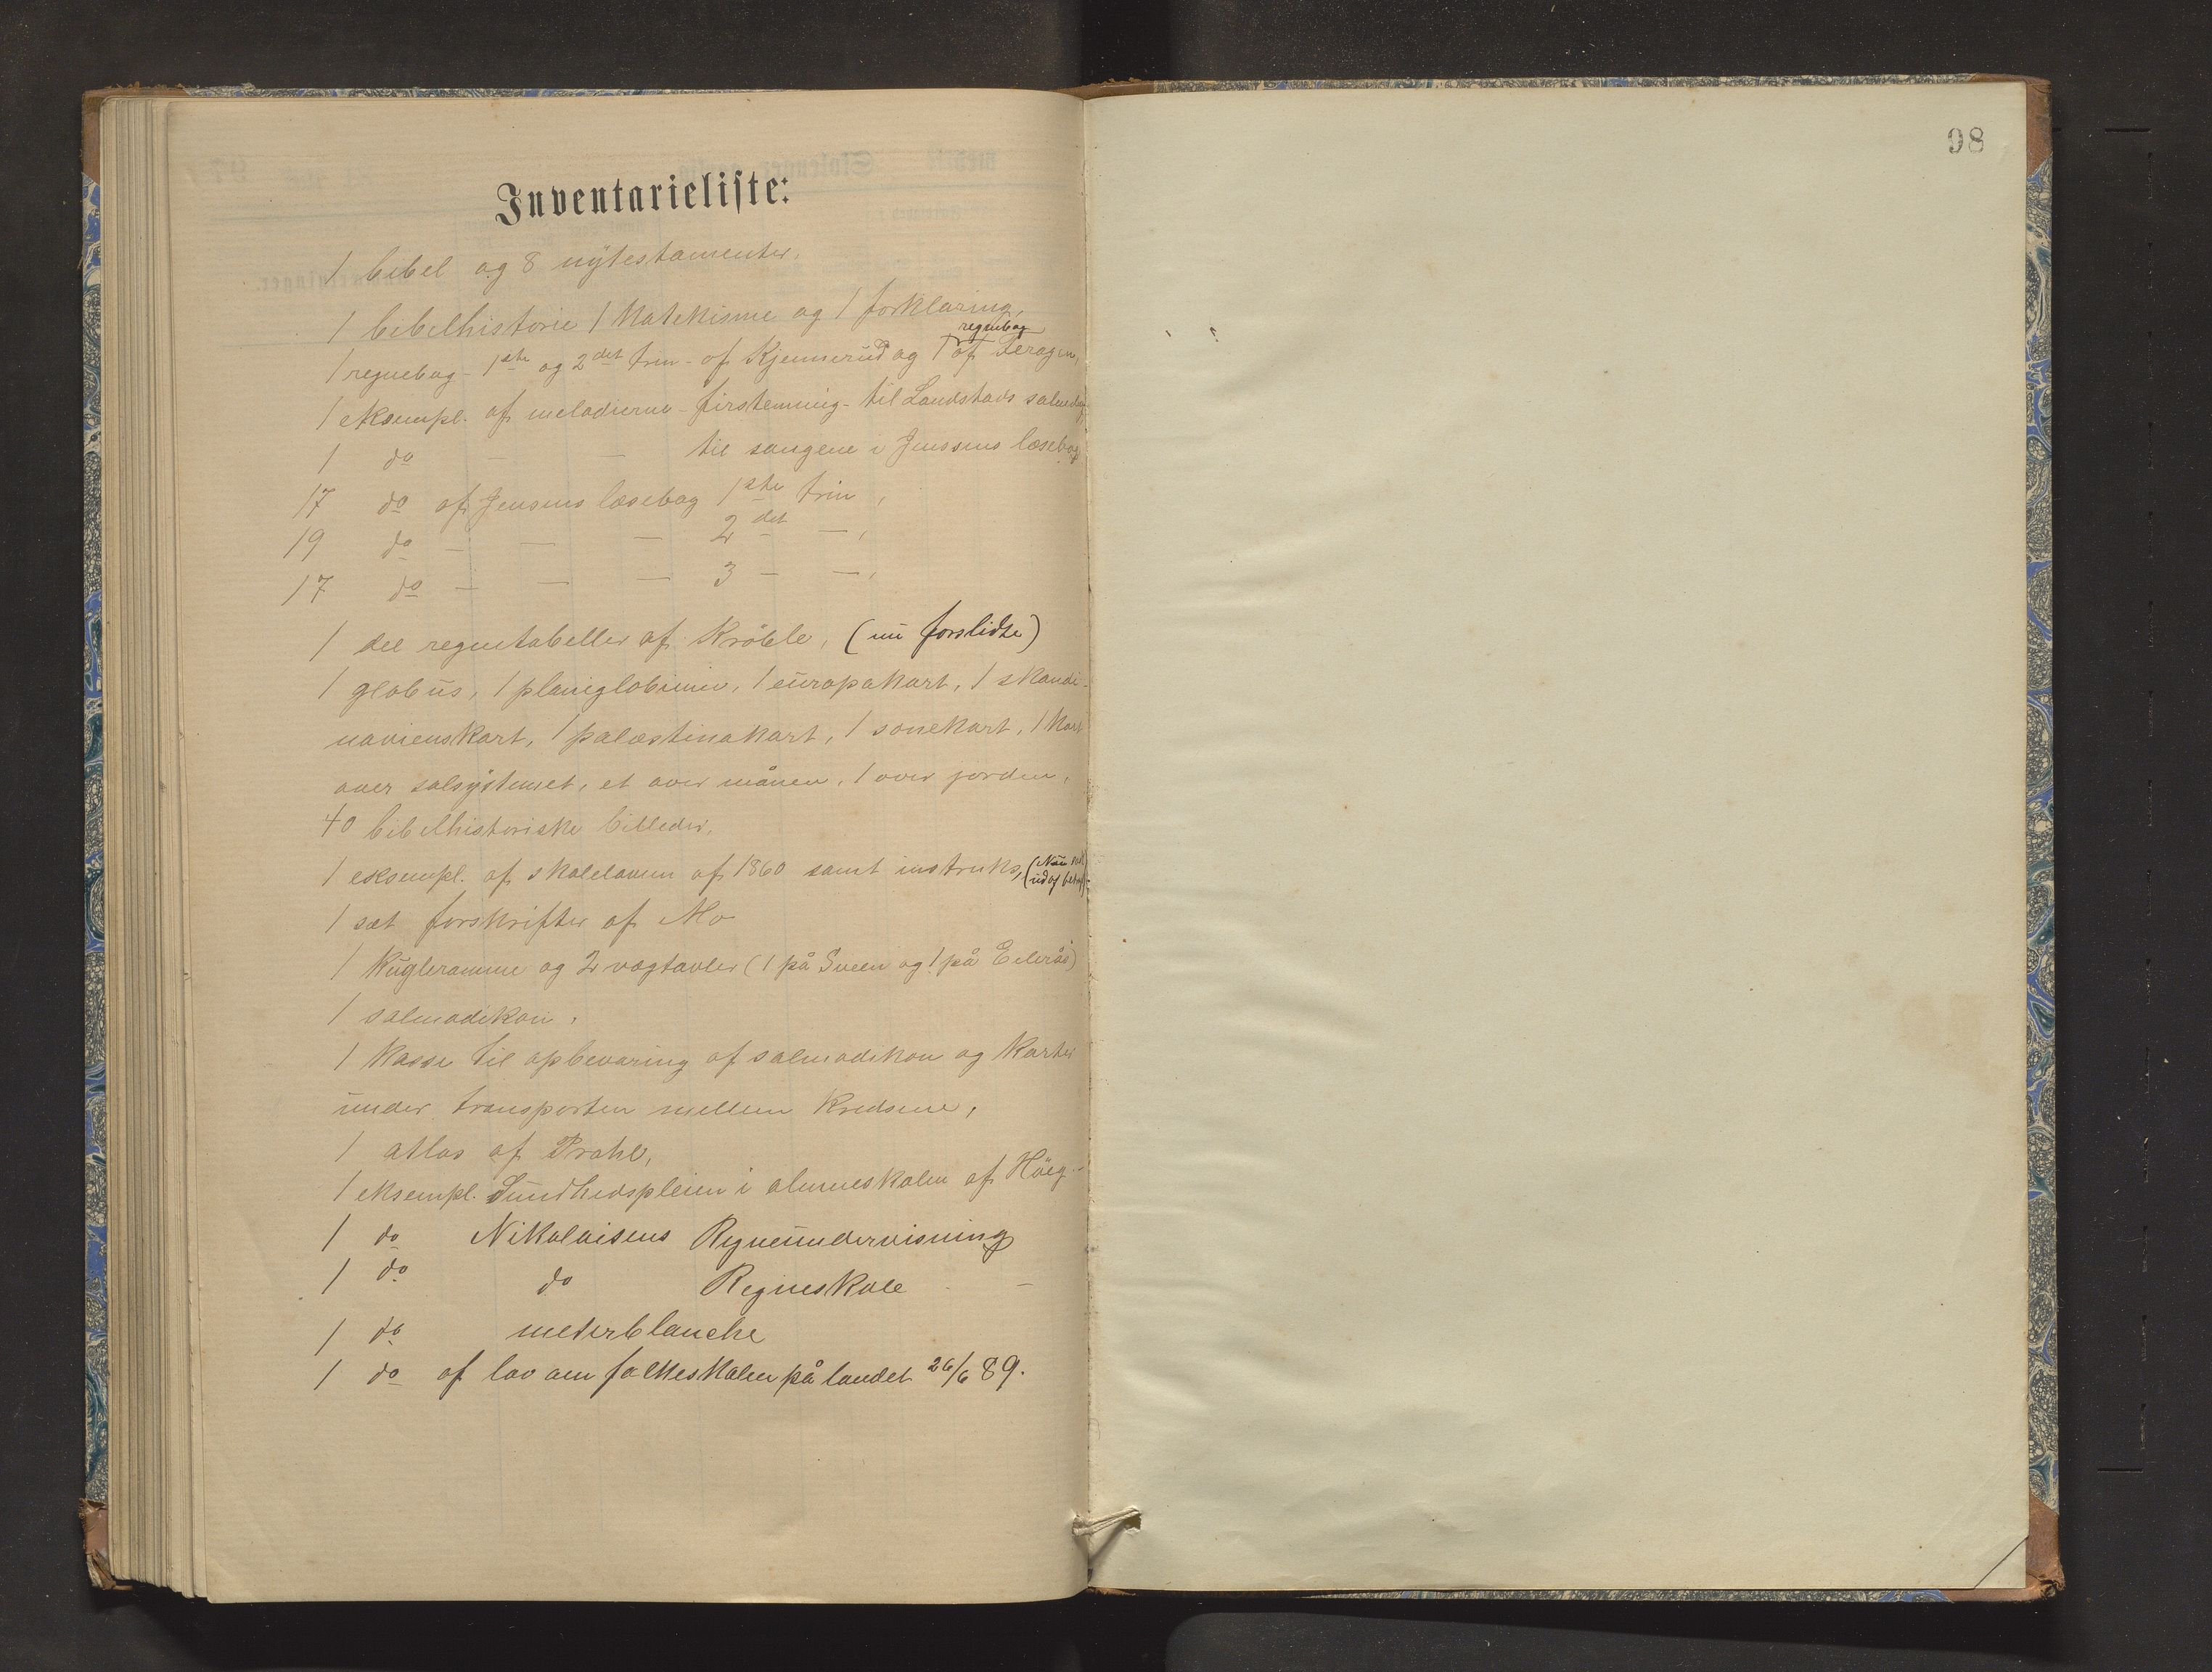 98
Inventarieliste:
1 bibel og 8 nytestamenter,
1 bibelhistorie 1 katekisme og 1 forklaring,
regnebog
1 regnebog - 1ste og 2det trin - af Kjennerud og 1 af Feragen,
1 eksempl. af melodierne - firstemmig - til Landstads salmebog
1 do — — til sangene i Jenssens læsebog
17 do af Jensens læsebog 1ste trin,
19 do — — — 2det —,
17 do — — — 3 — —,
1 del regnetabeller af Kröble, (nu forslidte)
1 globus, 1 planiglobium, 1 europakart, 1 skandi-
navienskart, 1 palæstinakart, 1 sonekart, 1 kart
over solsystemet, et over månen, 1 over jorden,
40 bibelhistoriske billeder,
1 eksempl. af skoleloven af 1860 samt instruks, (Nu
ud af
1 sæt forskrifter af Mo
1 kugleramme og 2 vægtavler (1 på Sveen og 1 på
1 salmodikon,
1 kasse til opbevaring af salmodikon og karter
under transporten mellem kredsene,
1 atlas af Prahl,
1 eksempl. Sundhedspleien i almueskolen af Höeg.
1 do Nikolaisens Regneundervisning
1 do do Regneskole —
1 do meterblanche
1 do af lov om folkeskolen på landet 26/6 89.